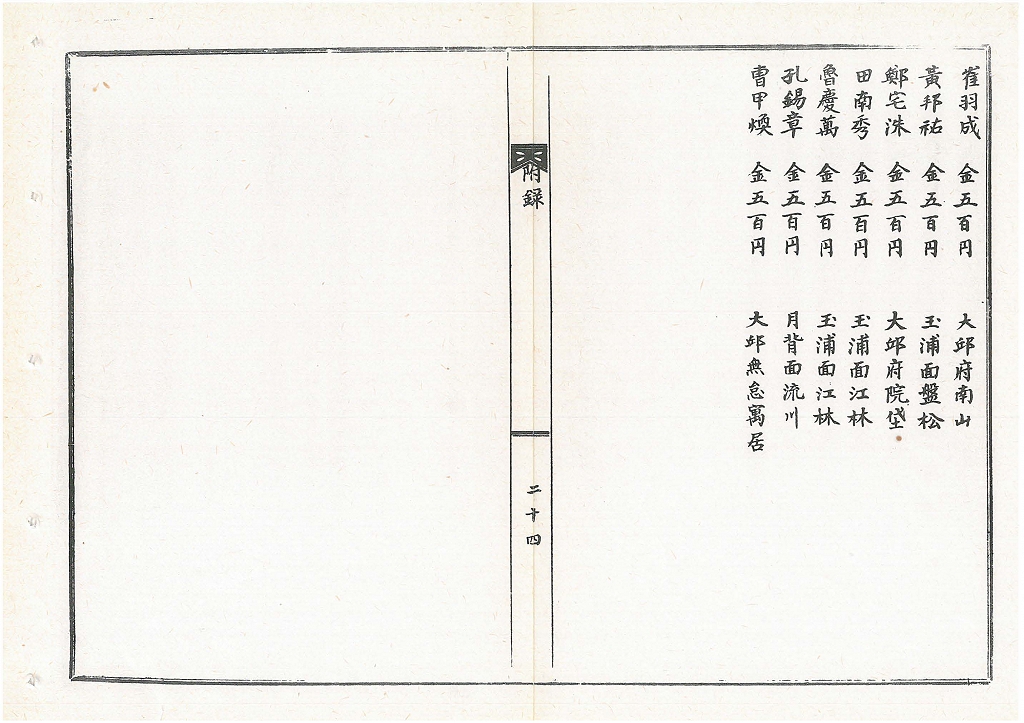 崔羽成 金五百円 大邱府南山
黃邦祐 金五百円 玉浦面盤松
鄭宅洙 金五百円 大邱府院垈
田南秀 金五百円 玉浦面江林
魯慶萬 金五百円 玉浦面江林
孔錫章 金五百円 月背面流川
曺甲煥 金五百円 大邱無怠寓居
附録
二十四